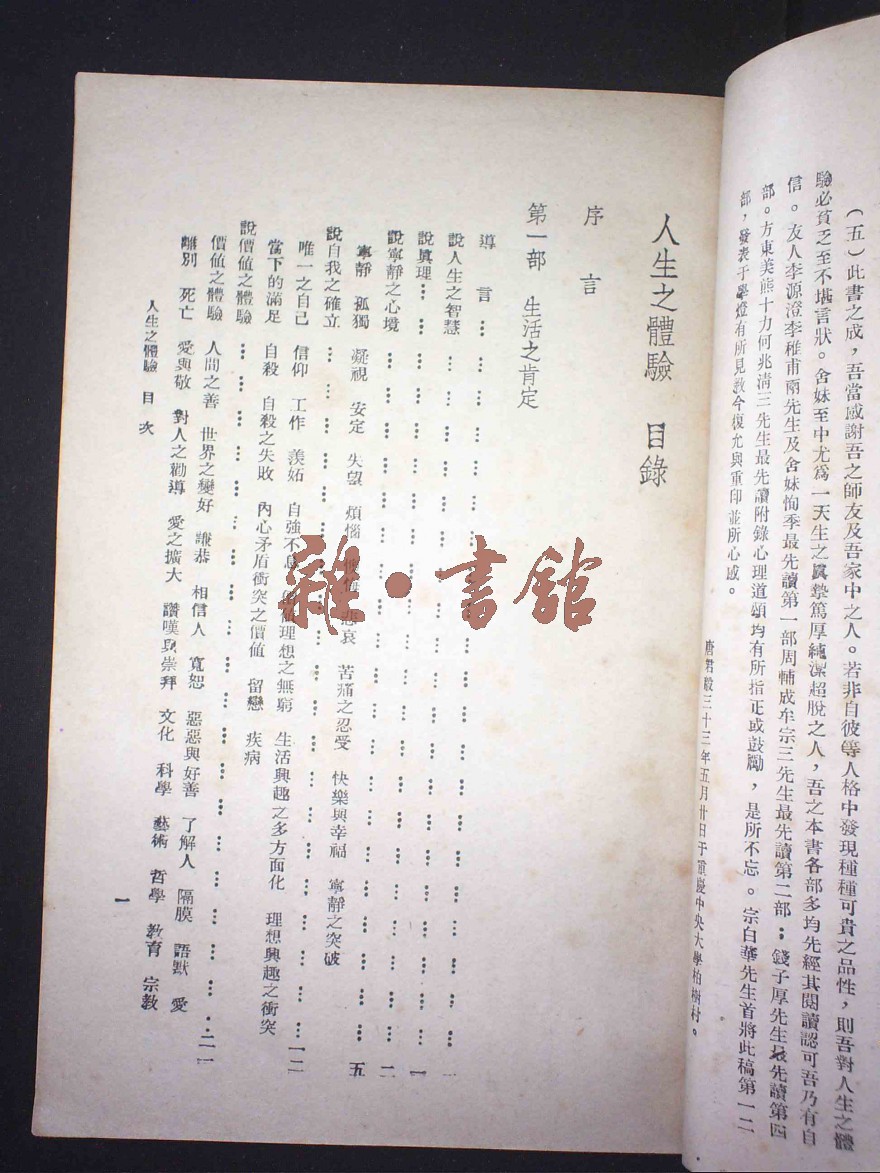 (五)此書之成,吾當感謝吾之師友及吾家中之人。若非自彼等人格中發現種種可貴之品性,則吾對人生之體
驗必貧乏至不堪言狀。舍妹至中尤爲一天生之眞摯篤厚純潔超脫之人,吾之本書各部多均先經其閱讀認可吾乃有自
信。友人李源澄李稚甫兩先生及舍妹恂季最先讀第一部周輔成牟宗三先生最先讀第二部;錢子厚先生最先讀第四
部。方東美熊十力何兆淸三先生最先讀附錄心理道頌均有所指正或鼓勵,是所不忘。宗白華先生首將此稿第一二
部,發表于學燈有所見敎今復允與重印並所心感。
唐君毅三十三年五月廿日于重慶中央大學柏樹村。
人生之體驗 目錄
序言
第一部 生活之肯定
導言……………………………一
說人生之智慧……………………………一
說眞理……………………………一
說寧靜之心境……………………………二
寧靜 孤獨 凝視 安定 失望 煩惱 悲哀 苦痛之忍受 快樂與幸福 寧靜之突破
說自我之確立……………………………五
唯一之自己 信仰 工作 羨妬 自強不息 價値理想之無窮 生活興趣之多方面化 理想興趣之衝突
當下的滿足 自殺 自殺之失敗 內心矛盾衝突之價値 留戀 疾病
說價値之體驗……………………………一二
價値之體驗 人間之善 世界之變好 謙恭 相信人 寬恕 惡惡與好善 了解人 隔膜 語默 愛
離別 死亡 愛與敬 對人之勸導 愛之擴大 讚嘆與崇拜 文化 科學 藝術 哲學 敎育 宗敎
二一
人生之體驗 目次
一
雜·書館